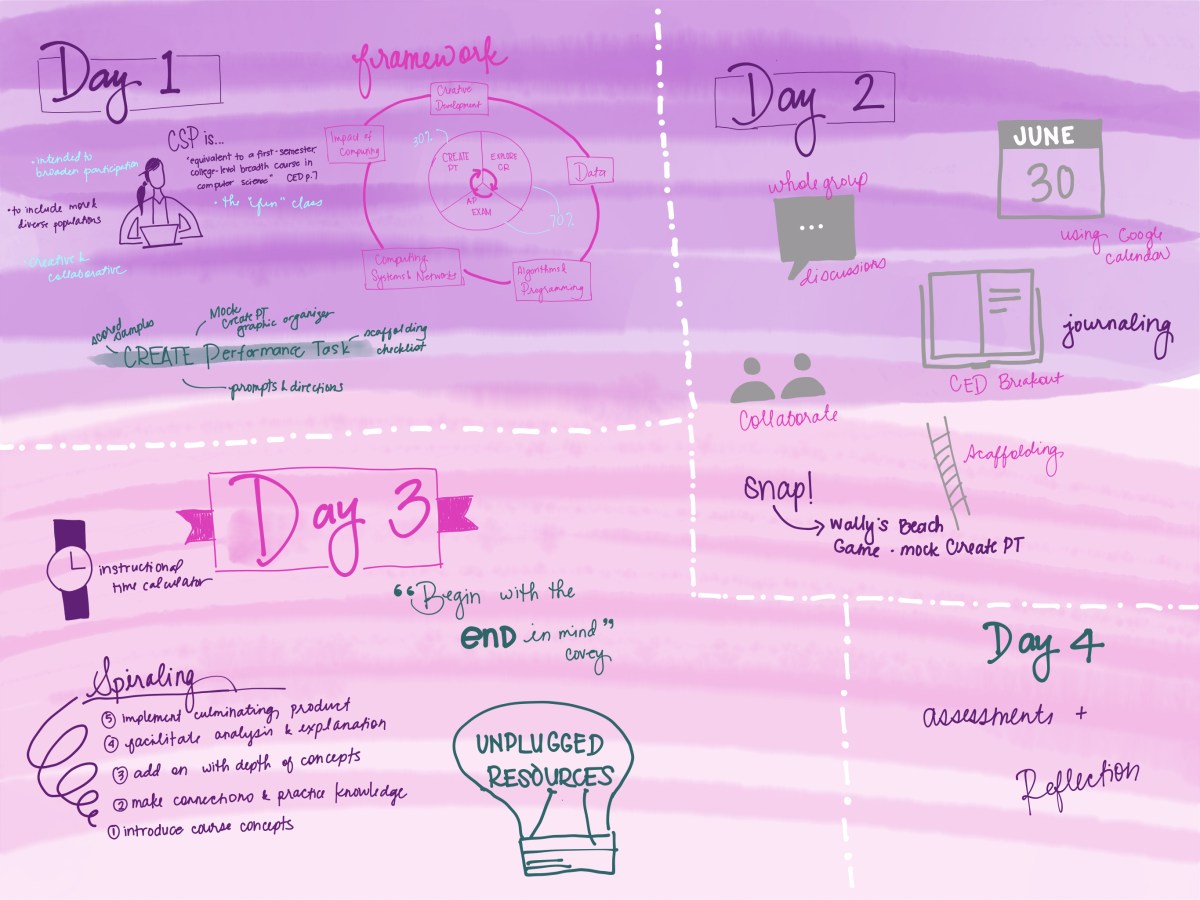 Day 1
framework
Creative
Development
Impact of
Computing
Data
Computing
Systems & Networks
Algorithms &
Programming
30%
CREATE
PT
EXPLORE
CR
AP
EXAM
70%
CSP is...
"equivalent to a first-semester,
college-level breadth course in
computer science" CED p.7
• the "fun" class
• intended to
broaden participation
• to include more &
diverse populations
• Creative &
collaborative
scored
samples
Mock
Create PT
graphic organizer
scaffolding
checklist
CREATE Performance Task
prompts & directions
Day 2
whole group
...
discussions
JUNE
30
using Google
Calendar
journaling
CED Breakout
Collaborate
Scaffolding
Snap!
Wally's Beach
Game - mock Create PT
Day 3
instructional
time calculator
"Begin with the
END in mind"
covey
Spiraling
⑤ implement culminating product
④ facilitate analysis & explanation
③ add on with depth of concepts
② make connections & practice knowledge
① introduce course concepts
UNPLUGGED
RESOURCES
Day 4
assessments +
Reflection